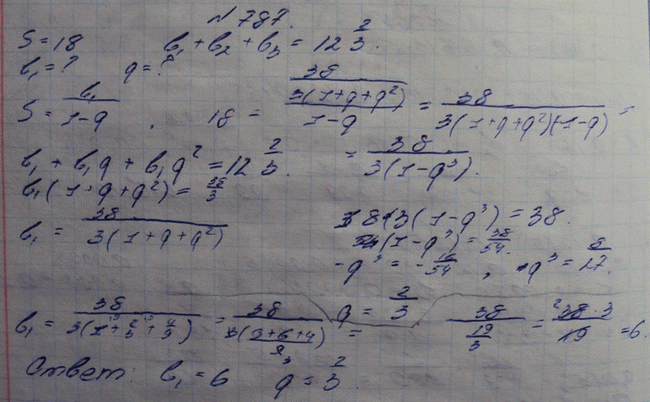 № 787.
S = 18 b₁ + b₂ + b₃ = 12 2/3.
b₁ = ? q = ?
S = b₁/(1-q) , 18 = (38/(3(1+q+q²)))/(1-q) = 38/(3(1+q+q²)(1-q)) =
b₁ + b₁q + b₁q² = 12 2/3. = 38/(3(1-q³)).
b₁(1+q+q²) = 38/3
b₁ = 38/(3(1+q+q²)) 18·3(1-q³) = 38.
(1-q³) = 38/54.
-q³ = -16/54 , q³ = 8/27.
q = 2/3
b₁ = 38/(3(1+2/3+4/9)) = 38/(3(9+6+4)/9) = 38/(19/3) = 38·3/19 = 6.
Ответ: b₁ = 6 q = 2/3